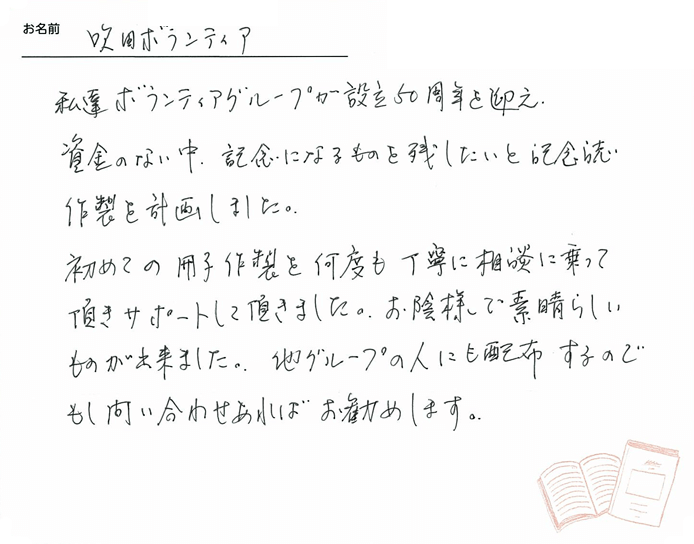 お名前 吹田ボランティア
私達ボランティアグループが設立50周年を迎え.
資金のない中、記念になるものを残したいと記念誌
作製を計画しました。
初めての冊子作製を何度も丁寧に相談に乗って
頂きサポートして頂きました。お陰様で素晴らしい
ものが出来ました。他グループの人にも配布するので
もし問い合わせあればお勧めします。